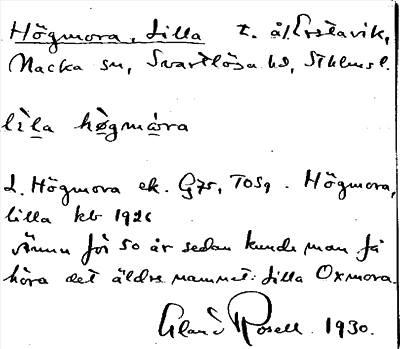 Högmora, Lilla t. å/Erstavik,
Nacka sn, Svartlösa hd, Sthlms l.
lìla hø̀gmóra
L. Högmora ek. G75, TO59. Högmora,
lilla kb 1926
Ännu för 50 år sedan kunde man få
höra det äldre namnet: Lilla Oxmora.
Rosell 1930.